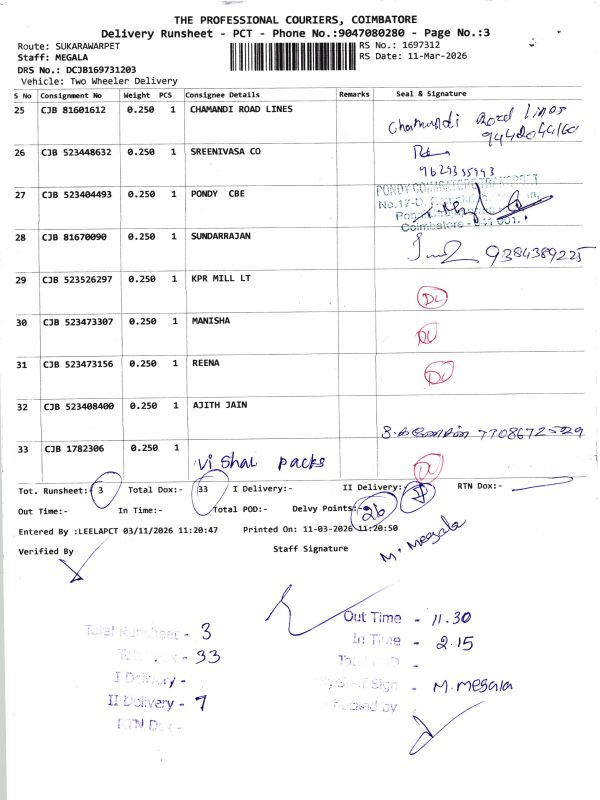 THE PROFESSIONAL COURIERS, COIMBATORE
Delivery Runsheet - PCT - Phone No.:9047080280 - Page No.:3
Route: SUKARAWARPET RS No.: 1697312
Staff: MEGALA RS Date: 11-Mar-2026
DRS No.: DCJB169731203
Vehicle: Two Wheeler Delivery
S No Consignment No Weight PCS Consignee Details Remarks Seal & Signature
25 CJB 81601612 0.250 1 CHAMANDI ROAD LINES
Chamundi Road Lines
26 CJB 523448632 0.250 1 SREENIVASA CO
27 CJB 523404493 0.250 1 PONDY CBE
PONDY COIMBATORE TRANSPORT
No.17-D,
Coimbatore - 641 001.
28 CJB 81670090 0.250 1 SUNDARRAJAN
9384389225
29 CJB 523526297 0.250 1 KPR MILL LT
DL
30 CJB 523473307 0.250 1 MANISHA
DL
31 CJB 523473156 0.250 1 REENA
DL
32 CJB 523408400 0.250 1 AJITH JAIN
33 CJB 1782306 0.250 1 Vishal packs
DL
Tot. Runsheet:- 3 Total Dox:- 33 I Delivery:- II Delivery:- 7 RTN Dox:-
Out Time:- In Time:- Total POD:- Delvy Points:- 26
Entered By :LEELAPCT 03/11/2026 11:20:47 Printed On: 11-03-2026 11:20:50
Verified By Staff Signature M. Megala
Total Runsheet - 3
33
I Delivery -
II Delivery - 7
RTN Dox -
Out Time - 11.30
In Time - 2.15
Sign - M.megala